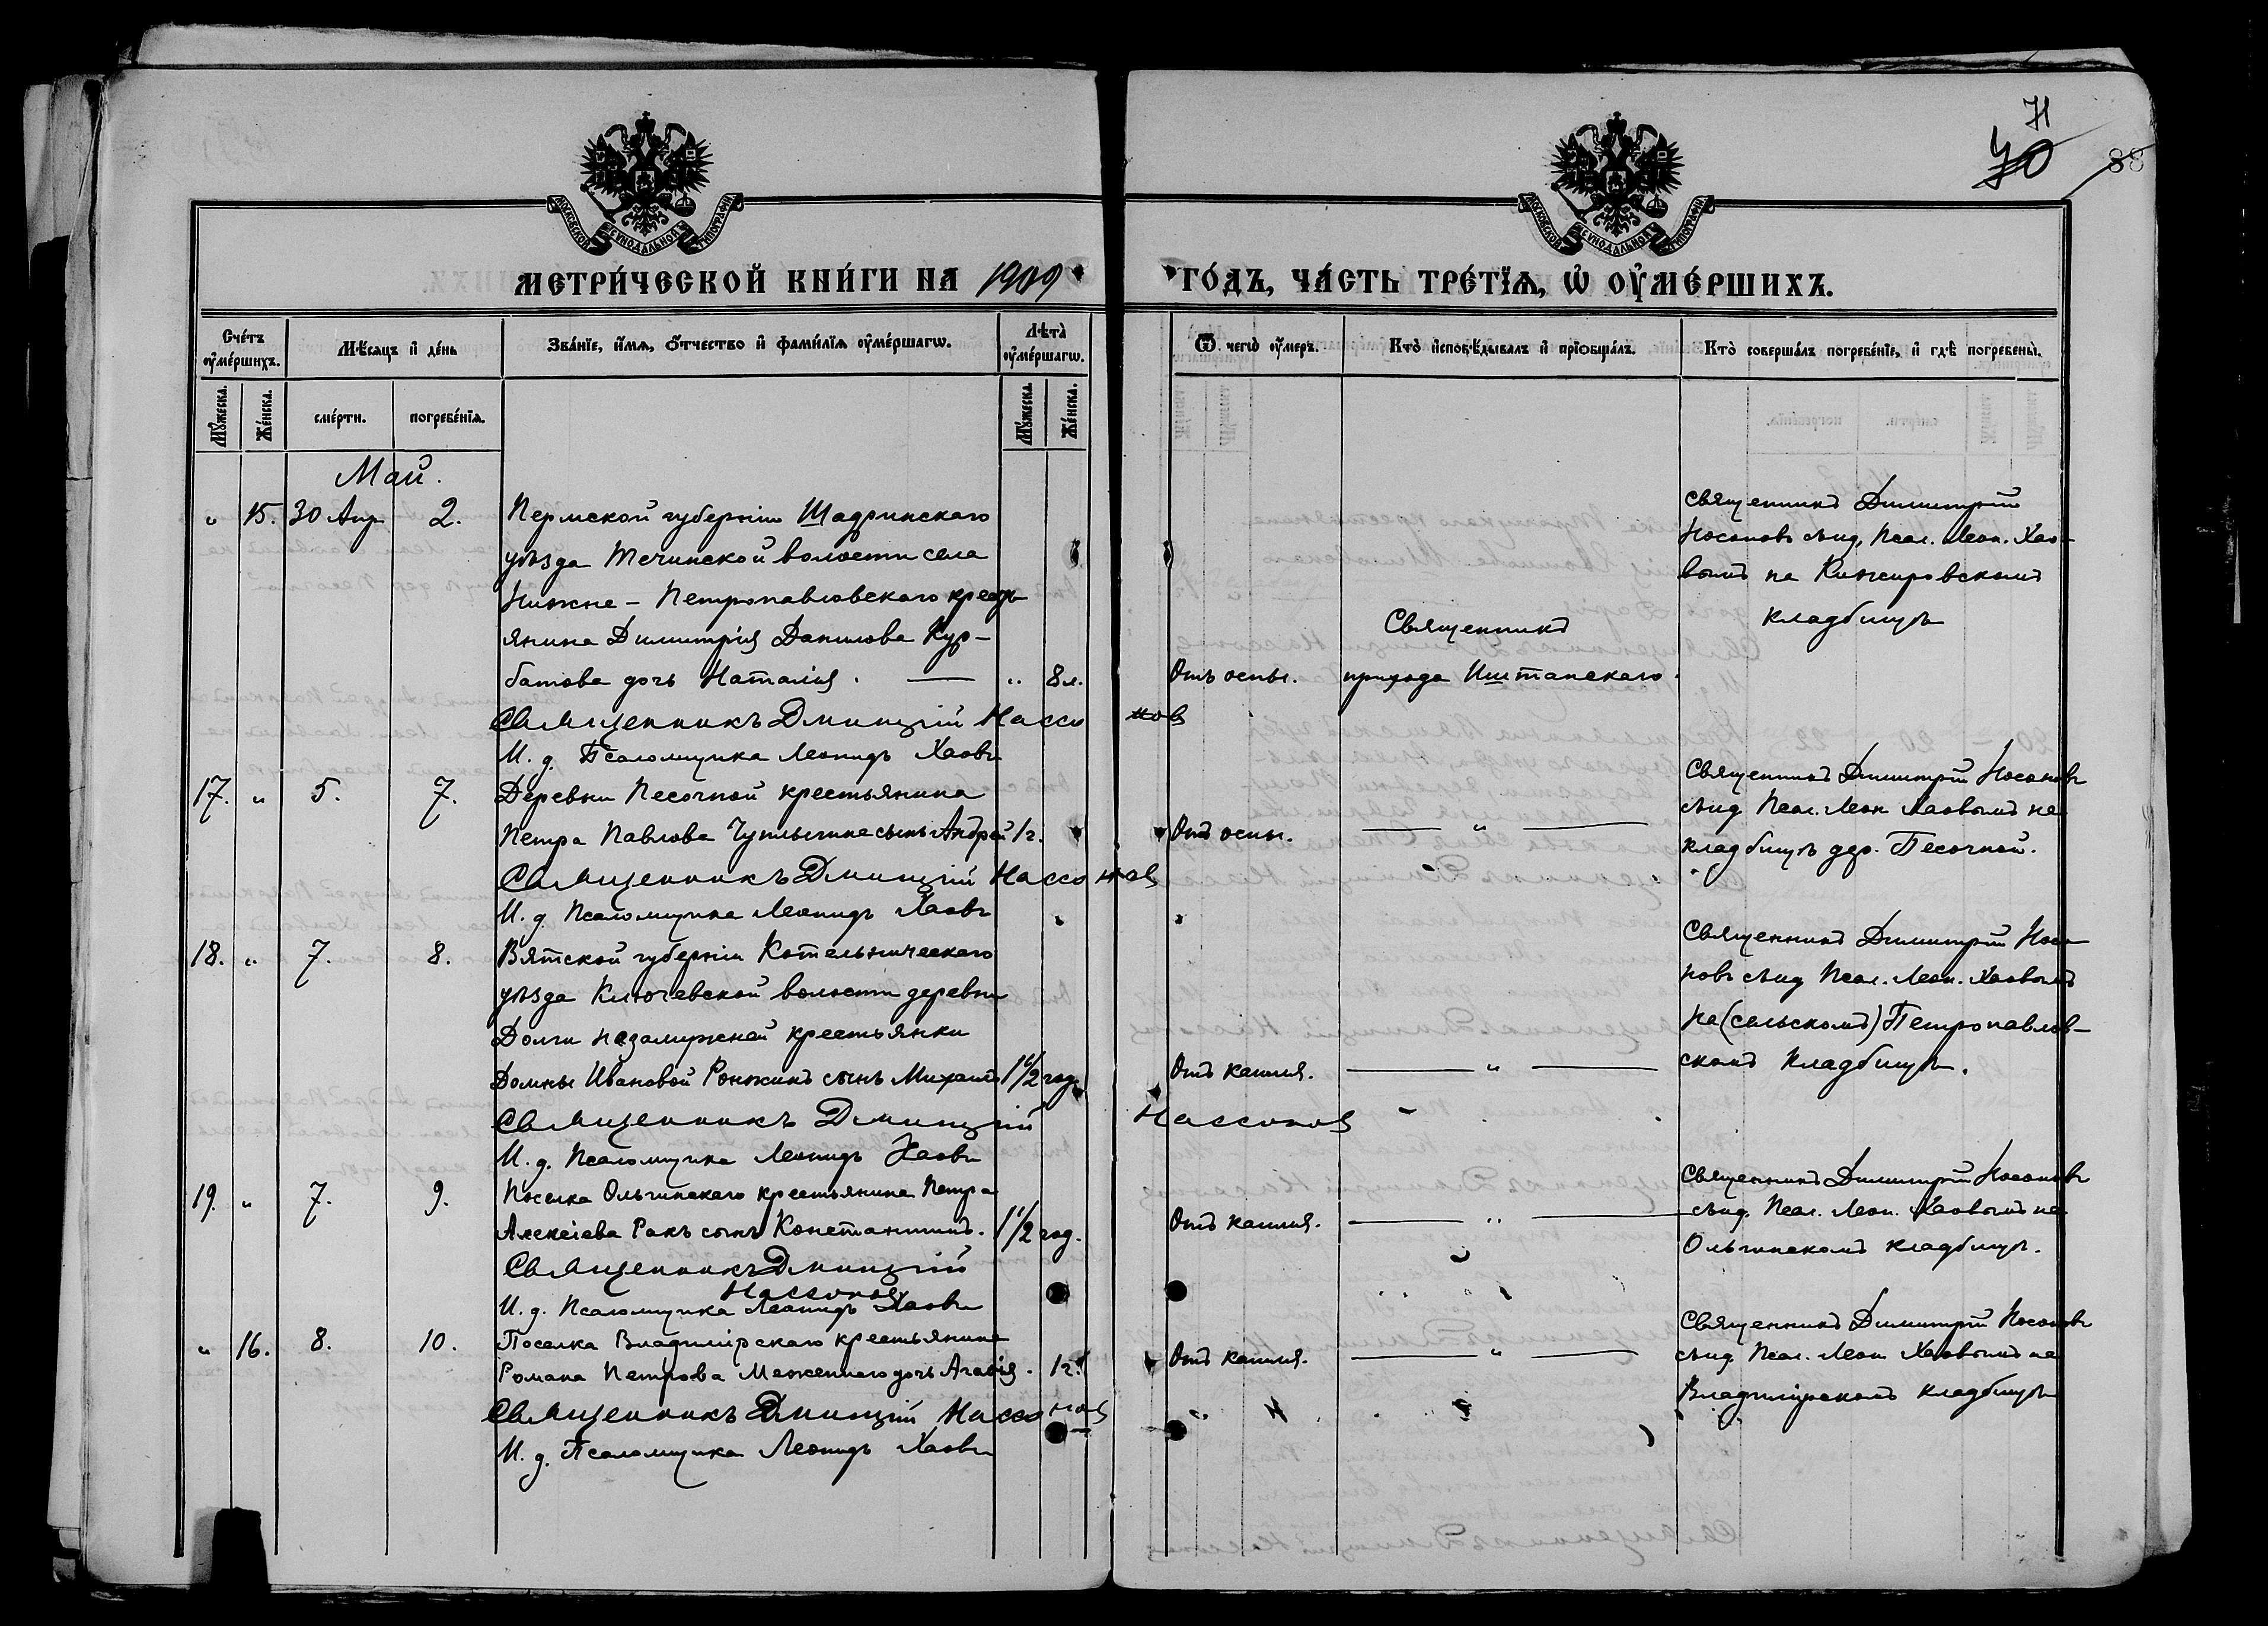 71
70 88
МОСКОВСКОЙ СѴНОДАЛЬНОЙ ТИПОГРАФІИ
МОСКОВСКОЙ СѴНОДАЛЬНОЙ ТИПОГРАФІИ
МЕТРИ́ЧЕСКОЙ КНИ́ГИ НА 1909
ГО́ДЪ, ЧА́СТЬ ТРЕ́ТЇѦ, Ѡ҆ ОУ҆МЕ́РШИХЪ.
Сче́тъ оу҆ме́ршихъ.
Мѣ́сяцъ и҆ де́нь
Зва́нїе, и҆́мѧ, о҆́тчество и҆ фами́лїѧ оу҆ме́ршагѡ.
Лѣ̑та оу҆ме́ршагѡ.
Ѿ чегѡ̀ оу҆́меръ.
Кто̀ и҆сповѣ́дывалъ и҆ прїѡбща́лъ.
Кто̀ соверша́лъ погребе́нїе, и҆ гдѣ̀ погребены̀.
Мꙋ́жеска.
Же́нска.
сме́рти.
погребе́нїѧ.
Мꙋ́жеска.
Же́нска.
Май.
" 15. 30 Апр 2.
Пермской губерніи Шадринскаго
уѣзда Течинской волости села
Нижне - Петропавловскаго кресть
янина Димитрія Данилова Кур-
батова дочь Наталія. — " 8 л.
Отъ оспы.
Священникъ
прихода Иштанскаго.
Священникъ Димитрій
Носоновъ съ и.д. Псал. Леон. Хао-
вымъ на Кижировскомъ
кладбищѣ
Священникъ Дмитрій Нассонов
И. д. Псаломщика Леонидъ Хаовъ
17. " 5. 7.
Деревни Песочной крестьянина
Петра Павлова сынъ Андрей 1 г.
Отъ оспы. — " —
Священникъ Димитрій Носоновъ
съ и.д. Псал. Леон Хаовымъ на
кладбищѣ дер. Песочной.
Священникъ Дмитрій Нассонов
И. д. Псаломщика Леонидъ Хаовъ
18. " 7. 8.
Вятской губерніи Котельническаго
уѣзда Ключевской волости деревни
Долги незамужней крестьянки
Домны Ивановой Ронжинъ сынъ Михаилъ 1 1/2 года
Отъ кашля. — " —
Священникъ Димитрій Носо-
новъ съ и.д. Псал. Леон. Хаовымъ
на (сельскомъ) Петропавлов-
скомъ кладбищѣ.
Священникъ Дмитрій Нассонов
И. д. Псаломщика Леонидъ Хаовъ
19. " 7. 9.
Поселка Ольгинскаго крестьянина Петра
Алексіева Ракъ сынъ Константинъ. 1 1/2 год.
Отъ кашля. — " —
Священникъ Димитрій Носоновъ
съ и.д. Псал. Леон. Хаовымъ на
Ольгинскомъ кладбищѣ.
Священникъ Дмитрій
Нассонов
И. д. Псаломщика Леонидъ Хаовъ
" 16. 8. 10.
Поселка Владимірскаго крестьянина
Романа Петрова Меженнаго дочь Агафія. 1 г.
Отъ кашля. — " —
Священникъ Димитрій Носоновъ
съ и.д. Псал. Леон Хаовымъ на
Владимірскомъ кладбищѣ
Священникъ Дмитрій Нассонов
И. д. Псаломщика Леонидъ Хаовъ